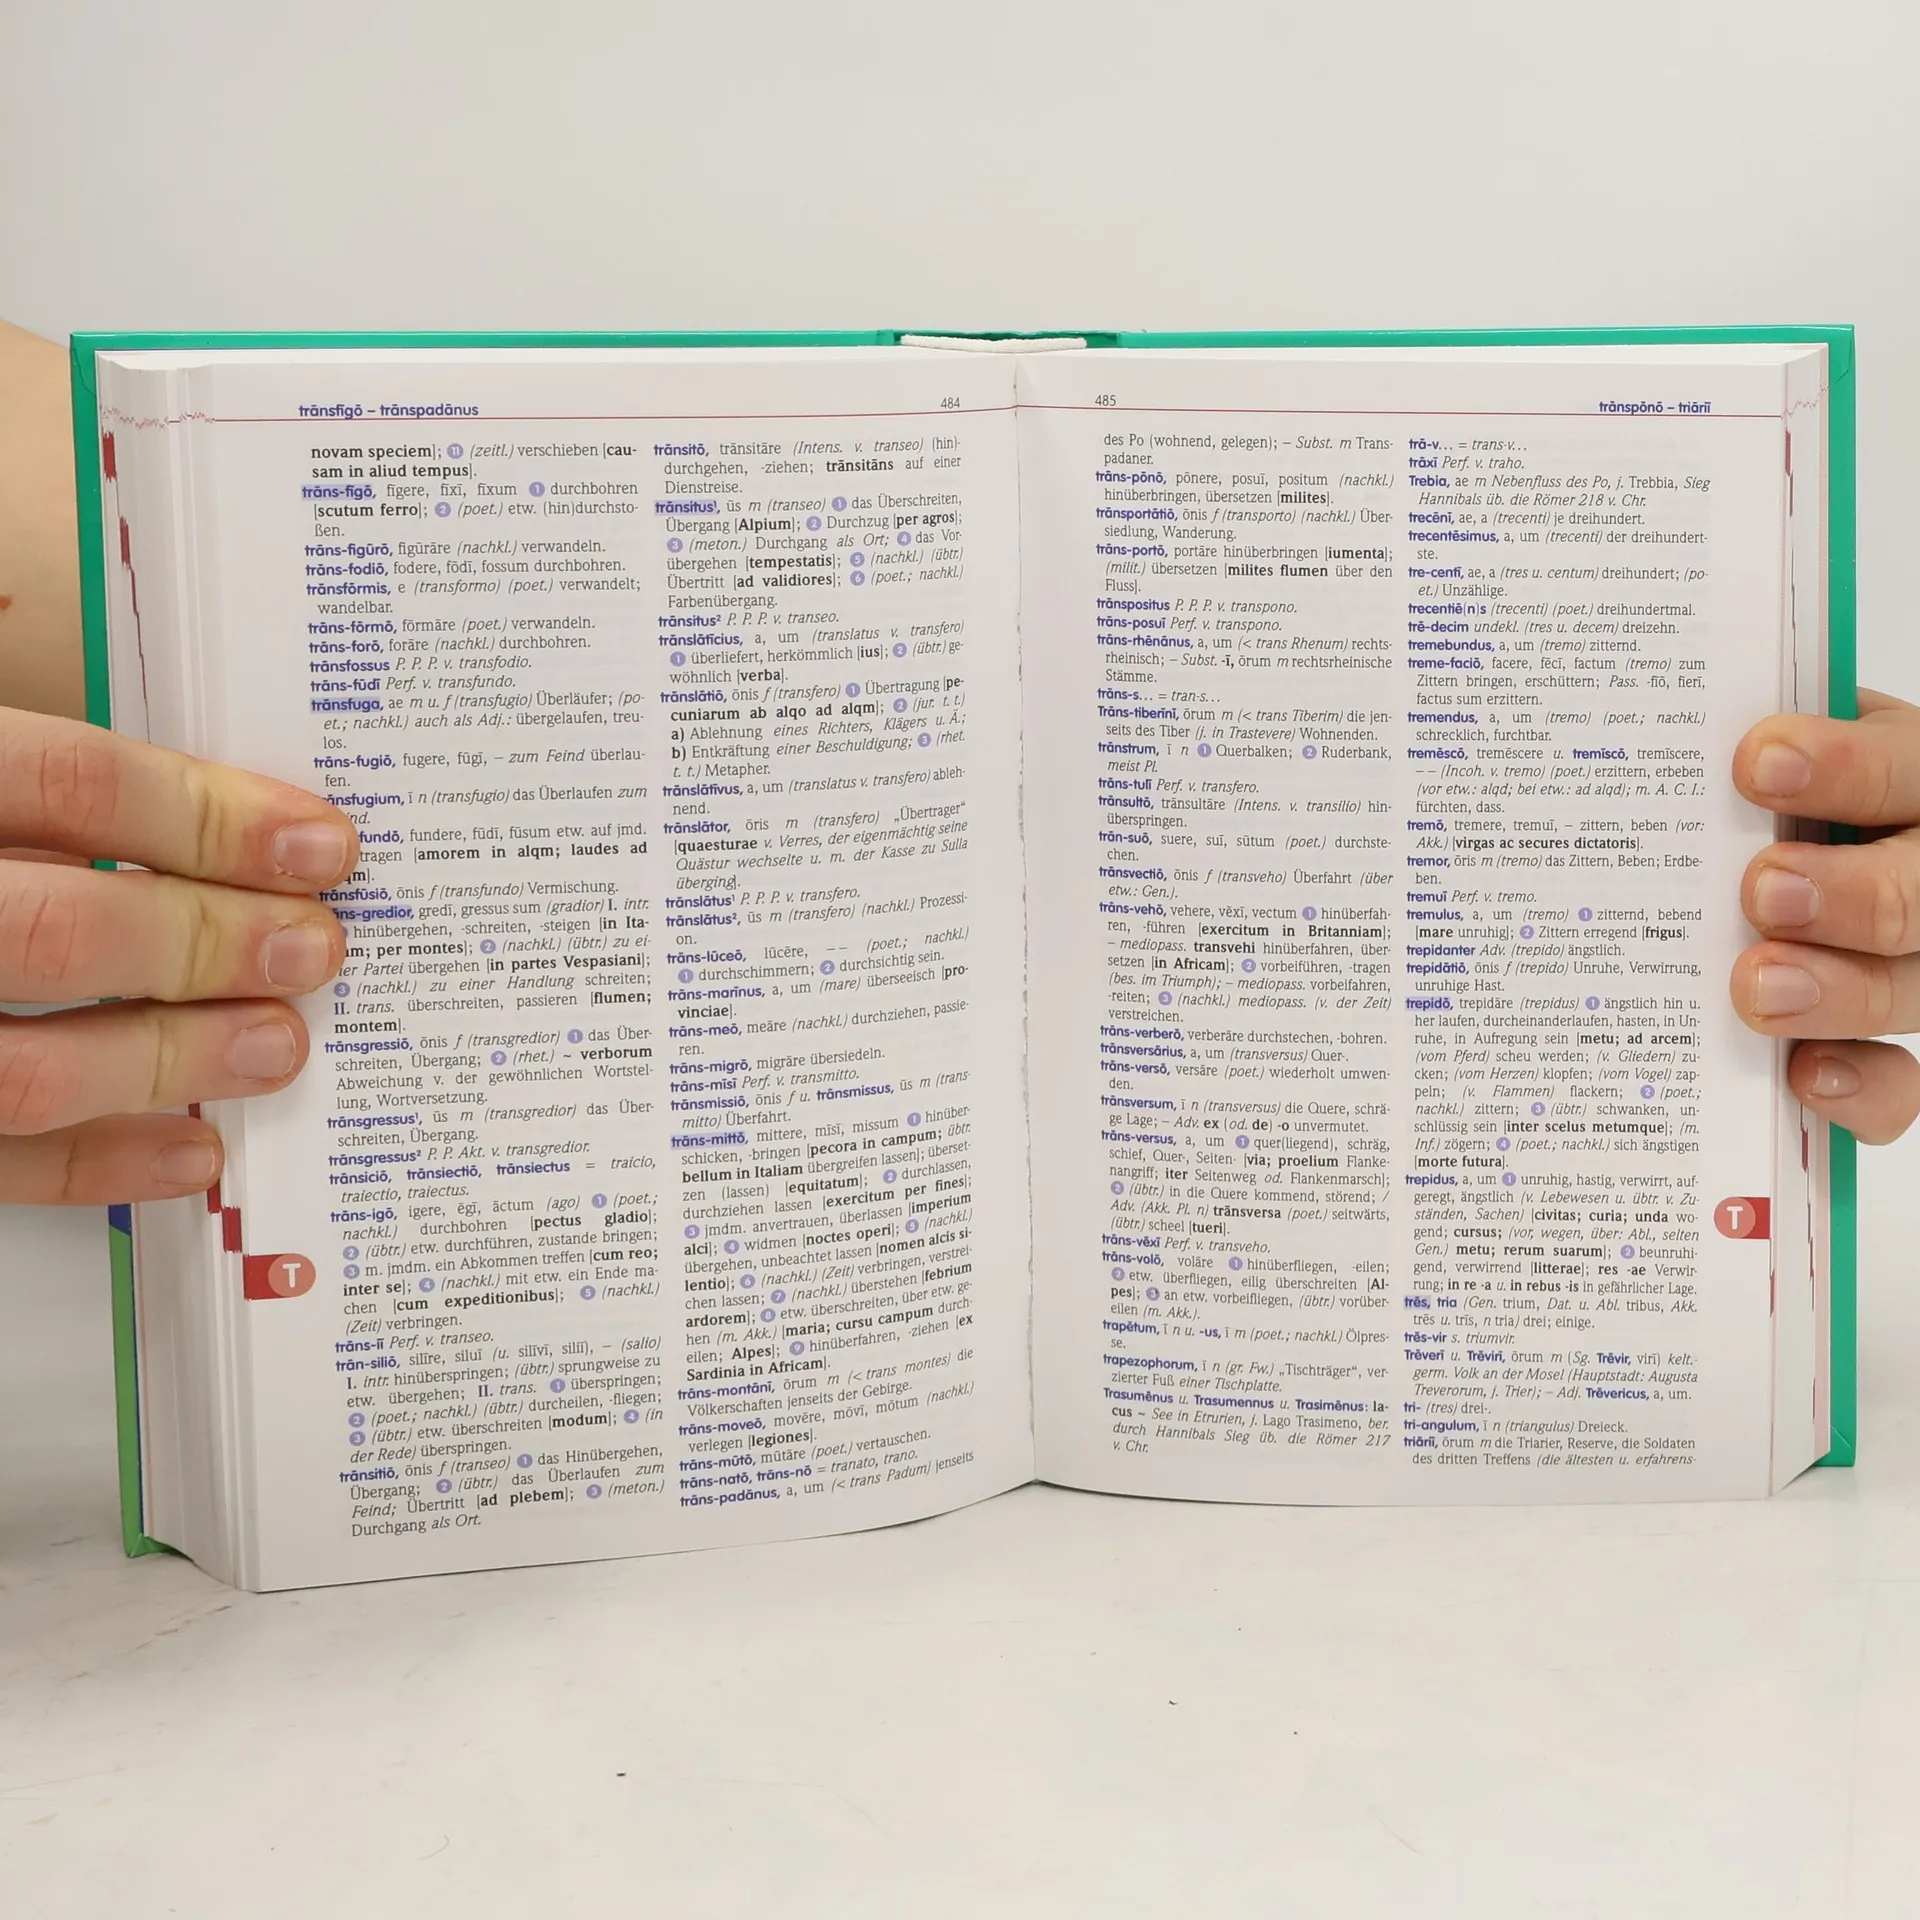 trānsfīgō – trānspadānus
484
novam speciem]; 11 (zeitl.) verschieben [cau-
sam in aliud tempus].
trāns-fīgō, fīgere, fīxī, fīxum 1 durchbohren
[scutum ferro]; 2 (poet.) etw. (hin)durchsto-
ßen.
trāns-figūrō, figūrāre (nachkl.) verwandeln.
trāns-fodiō, fodere, fōdī, fossum durchbohren.
trānsfōrmis, e (transformo) (poet.) verwandelt;
wandelbar.
trāns-fōrmō, fōrmāre (poet.) verwandeln.
trāns-forō, forāre (nachkl.) durchbohren.
trānsfossus P. P. P. v. transfodio.
trāns-fūdī Perf. v. transfundo.
trānsfuga, ae m u. f (transfugio) Überläufer; (po-
et.; nachkl.) auch als Adj.: übergelaufen, treu-
los.
trāns-fugiō, fugere, fūgī, – zum Feind überlau-
fen.
ānsfugium, ī n (transfugio) das Überlaufen zum
ind.
fundō, fundere, fūdī, fūsum etw. auf jmd.
tragen [amorem in alqm; laudes ad
qm].
trānsfūsiō, ōnis f (transfundo) Vermischung.
āns-gredior, gredī, gressus sum (gradior) I. intr.
hinübergehen, -schreiten, -steigen [in Ita-
am; per montes]; 2 (nachkl.) (übtr.) zu ei-
ner Partei übergehen [in partes Vespasiani];
3 (nachkl.) zu einer Handlung schreiten;
II. trans. überschreiten, passieren [flumen;
montem].
trānsgressiō, ōnis f (transgredior) 1 das Über-
schreiten, Übergang; 2 (rhet.) ~ verborum
Abweichung v. der gewöhnlichen Wortstel-
lung, Wortversetzung.
trānsgressus¹, ūs m (transgredior) das Über-
schreiten, Übergang.
trānsgressus² P. P. Akt. v. transgredior.
trānsiciō, trānsiectiō, trānsiectus = traicio,
traiectio, traiectus.
trāns-igō, igere, ēgī, āctum (ago) 1 (poet.;
nachkl.) durchbohren [pectus gladio];
2 (übtr.) etw. durchführen, zustande bringen;
3 m. jmdm. ein Abkommen treffen [cum reo;
inter se]; 4 (nachkl.) mit etw. ein Ende ma-
chen [cum expeditionibus]; 5 (nachkl.)
(Zeit) verbringen.
trāns-iī Perf. v. transeo.
trān-siliō, silīre, siluī (u. silīvī, siliī), – (salio)
I. intr. hinüberspringen; (übtr.) sprungweise zu
etw. übergehen; II. trans. 1 überspringen;
2 (poet.; nachkl.) (übtr.) durcheilen, -fliegen;
3 (übtr.) etw. überschreiten [modum]; 4 (in
der Rede) überspringen.
trānsitiō, ōnis f (transeo) 1 das Hinübergehen,
Übergang; 2 (übtr.) das Überlaufen zum
Feind; Übertritt [ad plebem]; 3 (meton.)
Durchgang als Ort.
T
trānsitō, trānsitāre (Intens. v. transeo) (hin)-
durchgehen, -ziehen; trānsitāns auf einer
Dienstreise.
trānsitus¹, ūs m (transeo) 1 das Überschreiten,
Übergang [Alpium]; 2 Durchzug [per agros];
3 (meton.) Durchgang als Ort; 4 das Vor-
übergehen [tempestatis]; 5 (nachkl.) (übtr.)
Übertritt [ad validiores]; 6 (poet.; nachkl.)
Farbenübergang.
trānsitus² P. P. P. v. transeo.
trānslātīcius, a, um (translatus v. transfero)
1 überliefert, herkömmlich [ius]; 2 (übtr.) ge-
wöhnlich [verba].
trānslātiō, ōnis f (transfero) 1 Übertragung [pe-
cuniarum ab alqo ad alqm]; 2 (jur. t. t.)
a) Ablehnung eines Richters, Klägers u. Ä.;
b) Entkräftung einer Beschuldigung; 3 (rhet.
t. t.) Metapher.
trānslātīvus, a, um (translatus v. transfero) ableh-
nend.
trānslātor, ōris m (transfero) „Übertrager“
[quaesturae v. Verres, der eigenmächtig seine
Quästur wechselte u. m. der Kasse zu Sulla
überging].
trānslātus¹ P. P. P. v. transfero.
trānslātus², ūs m (transfero) (nachkl.) Prozessi-
on.
trāns-lūceō, lūcēre, – – (poet.; nachkl.)
1 durchschimmern; 2 durchsichtig sein.
trāns-marīnus, a, um (mare) überseeisch [pro-
vinciae].
trāns-meō, meāre (nachkl.) durchziehen, passie-
ren.
trāns-migrō, migrāre übersiedeln.
trāns-mīsī Perf. v. transmitto.
trānsmissiō, ōnis f u. trānsmissus, ūs m (trans-
mitto) Überfahrt.
trāns-mittō, mittere, mīsī, missum 1 hinüber-
schicken, -bringen [pecora in campum; übtr.
bellum in Italiam übergreifen lassen]; überset-
zen (lassen) [equitatum]; 2 durchlassen,
durchziehen lassen [exercitum per fines];
3 jmdm. anvertrauen, überlassen [imperium
alci]; 4 widmen [noctes operi]; 5 (nachkl.)
übergehen, unbeachtet lassen [nomen alcis si-
lentio]; 6 (nachkl.) (Zeit) verbringen, verstrei-
chen lassen; 7 (nachkl.) überstehen [febrium
ardorem]; 8 etw. überschreiten, über etw. ge-
hen (m. Akk.) [maria; cursu campum durch-
eilen; Alpes]; 9 hinüberfahren, -ziehen [ex
Sardinia in Africam].
trāns-montānī, ōrum m (< trans montes) die
Völkerschaften jenseits der Gebirge.
trāns-moveō, movēre, mōvī, mōtum (nachkl.)
verlegen [legiones].
trāns-mūtō, mūtāre (poet.) vertauschen.
trāns-natō, trāns-nō = tranato, trano.
trāns-padānus, a, um (< trans Padum) jenseits
485
trānspōnō – triāriī
des Po (wohnend, gelegen); – Subst. m Trans-
padaner.
trāns-pōnō, pōnere, posuī, positum (nachkl.)
hinüberbringen, übersetzen [milites].
trānsportātiō, ōnis f (transporto) (nachkl.) Über-
siedlung, Wanderung.
trāns-portō, portāre hinüberbringen [iumenta];
(milit.) übersetzen [milites flumen über den
Fluss].
trānspositus P. P. P. v. transpono.
trāns-posuī Perf. v. transpono.
trāns-rhēnānus, a, um (< trans Rhenum) rechts-
rheinisch; – Subst. -ī, ōrum m rechtsrheinische
Stämme.
trāns-s… = tran-s…
Trāns-tiberīnī, ōrum m (< trans Tiberim) die jen-
seits des Tiber (j. in Trastevere) Wohnenden.
trānstrum, ī n 1 Querbalken; 2 Ruderbank,
meist Pl.
trāns-tulī Perf. v. transfero.
trānsultō, trānsultāre (Intens. v. transilio) hin-
überspringen.
trān-suō, suere, suī, sūtum (poet.) durchste-
chen.
trānsvectiō, ōnis f (transveho) Überfahrt (über
etw.: Gen.).
trāns-vehō, vehere, vēxī, vectum 1 hinüberfah-
ren, -führen [exercitum in Britanniam];
– mediopass. transvehi hinüberfahren, über-
setzen [in Africam]; 2 vorbeiführen, -tragen
(bes. im Triumph); – mediopass. vorbeifahren,
-reiten; 3 (nachkl.) mediopass. (v. der Zeit)
verstreichen.
trāns-verberō, verberāre durchstechen, -bohren.
trānsversārius, a, um (transversus) Quer-.
trāns-versō, versāre (poet.) wiederholt umwen-
den.
trānsversum, ī n (transversus) die Quere, schrä-
ge Lage; – Adv. ex (od. de) -o unvermutet.
trāns-versus, a, um 1 quer(liegend), schräg,
schief, Quer-, Seiten- [via; proelium Flanke-
nangriff; iter Seitenweg od. Flankenmarsch];
2 (übtr.) in die Quere kommend, störend; /
Adv. (Akk. Pl. n) trānsversa (poet.) seitwärts,
(übtr.) scheel [tueri].
trāns-vēxī Perf. v. transveho.
trāns-volō, volāre 1 hinüberfliegen, -eilen;
2 etw. überfliegen, eilig überschreiten [Al-
pes]; 3 an etw. vorbeifliegen, (übtr.) vorüber-
eilen (m. Akk.).
trapētum, ī n u. -us, ī m (poet.; nachkl.) Ölpres-
se.
trapezophorum, ī n (gr. Fw.) „Tischträger“, ver-
zierter Fuß einer Tischplatte.
Trasumēnus u. Trasumennus u. Trasimēnus: la-
cus ~ See in Etrurien, j. Lago Trasimeno, ber.
durch Hannibals Sieg üb. die Römer 217
v. Chr.
trā-v… = trans-v…
trāxī Perf. v. traho.
Trebia, ae m Nebenfluss des Po, j. Trebbia, Sieg
Hannibals üb. die Römer 218 v. Chr.
trecēnī, ae, a (trecenti) je dreihundert.
trecentēsimus, a, um (trecenti) der dreihundert-
ste.
tre-centī, ae, a (tres u. centum) dreihundert; (po-
et.) Unzählige.
trecentiē(n)s (trecenti) (poet.) dreihundertmal.
trē-decim undekl. (tres u. decem) dreizehn.
tremebundus, a, um (tremo) zitternd.
treme-faciō, facere, fēcī, factum (tremo) zum
Zittern bringen, erschüttern; Pass. -fīō, fierī,
factus sum erzittern.
tremendus, a, um (tremo) (poet.; nachkl.)
schrecklich, furchtbar.
tremēscō, tremēscere u. tremīscō, tremīscere,
– – (Incoh. v. tremo) (poet.) erzittern, erbeben
(vor etw.: alqd; bei etw.: ad alqd); m. A. C. I.:
fürchten, dass.
tremō, tremere, tremuī, – zittern, beben (vor:
Akk.) [virgas ac secures dictatoris].
tremor, ōris m (tremo) das Zittern, Beben; Erdbe-
ben.
tremuī Perf. v. tremo.
tremulus, a, um (tremo) 1 zitternd, bebend
[mare unruhig]; 2 Zittern erregend [frigus].
trepidanter Adv. (trepido) ängstlich.
trepidātiō, ōnis f (trepido) Unruhe, Verwirrung,
unruhige Hast.
trepidō, trepidāre (trepidus) 1 ängstlich hin u.
her laufen, durcheinanderlaufen, hasten, in Un-
ruhe, in Aufregung sein [metu; ad arcem];
(vom Pferd) scheu werden; (v. Gliedern) zu-
cken; (vom Herzen) klopfen; (vom Vogel) zap-
peln; (v. Flammen) flackern; 2 (poet.;
nachkl.) zittern; 3 (übtr.) schwanken, un-
schlüssig sein [inter scelus metumque]; (m.
Inf.) zögern; 4 (poet.; nachkl.) sich ängstigen
[morte futura].
trepidus, a, um 1 unruhig, hastig, verwirrt, auf-
geregt, ängstlich (v. Lebewesen u. übtr. v. Zu-
ständen, Sachen) [civitas; curia; unda wo-
gend; cursus; (vor, wegen, über: Abl., selten
Gen.) metu; rerum suarum]; 2 beunruhi-
gend, verwirrend [litterae]; res -ae Verwir-
rung; in re -a u. in rebus -is in gefährlicher Lage.
trēs, tria (Gen. trium, Dat. u. Abl. tribus, Akk.
trēs u. trīs, n tria) drei; einige.
trēs-vir s. triumvir.
Trēverī u. Trēvirī, ōrum m (Sg. Trēvir, virī) kelt.-
germ. Volk an der Mosel (Hauptstadt: Augusta
Treverorum, j. Trier); – Adj. Trēvericus, a, um.
tri- (tres) drei-.
tri-angulum, ī n (triangulus) Dreieck.
triāriī, ōrum m die Triarier, Reserve, die Soldaten
des dritten Treffens (die ältesten u. erfahrens-
T